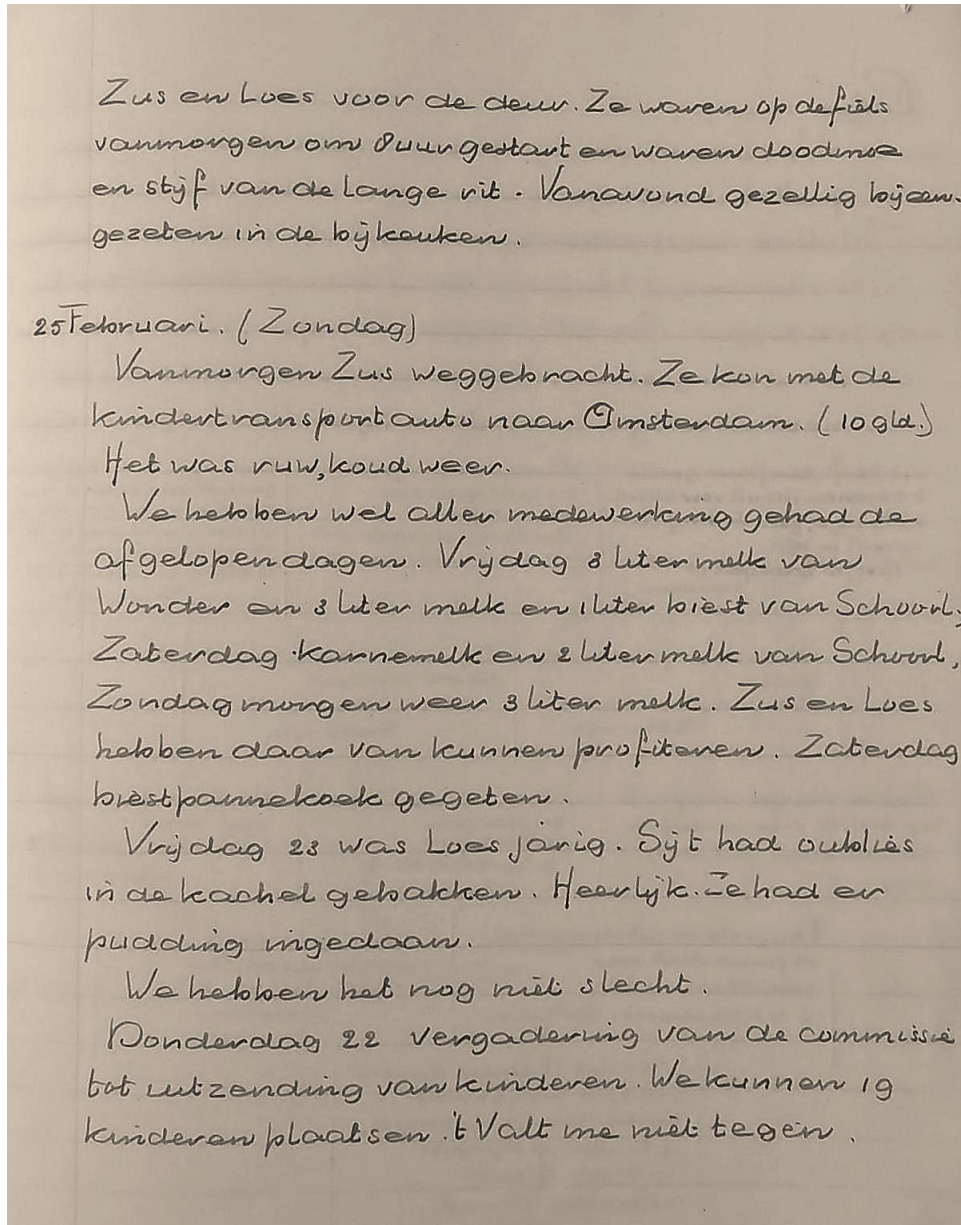 Zus en Loes voor de deur. Ze waren op de fiets
vanmorgen om 8 uur gestart en waren doodmoe
en stijf van de lange rit. Vanavond gezellig bijeen-
gezeten in de bijkeuken.
25 Februari. (Zondag)
Vanmorgen Zus weggebracht. Ze kon met de
kindertransportauto naar Amsterdam. (10 gld.)
Het was ruw, koud weer.
We hebben wel aller medewerking gehad de
afgelopen dagen. Vrijdag 3 liter melk van
Wonder en 3 liter melk en 1 liter biest van Schoorl;
Zaterdag karnemelk en 2 liter melk van Schoorl,
Zondagmorgen weer 3 liter melk. Zus en Loes
hebben daar van kunnen profiteren. Zaterdag
biestpannekoek gegeten.
Vrijdag 23 was Loes jarig. Sijt had oublies
in de kachel gebakken. Heerlijk. Ze had er
pudding ingedaan.
We hebben het nog niet slecht.
Donderdag 22 vergadering van de commissie
tot uitzending van kinderen. We kunnen 19
kinderen plaatsen. 't Valt me niet tegen.